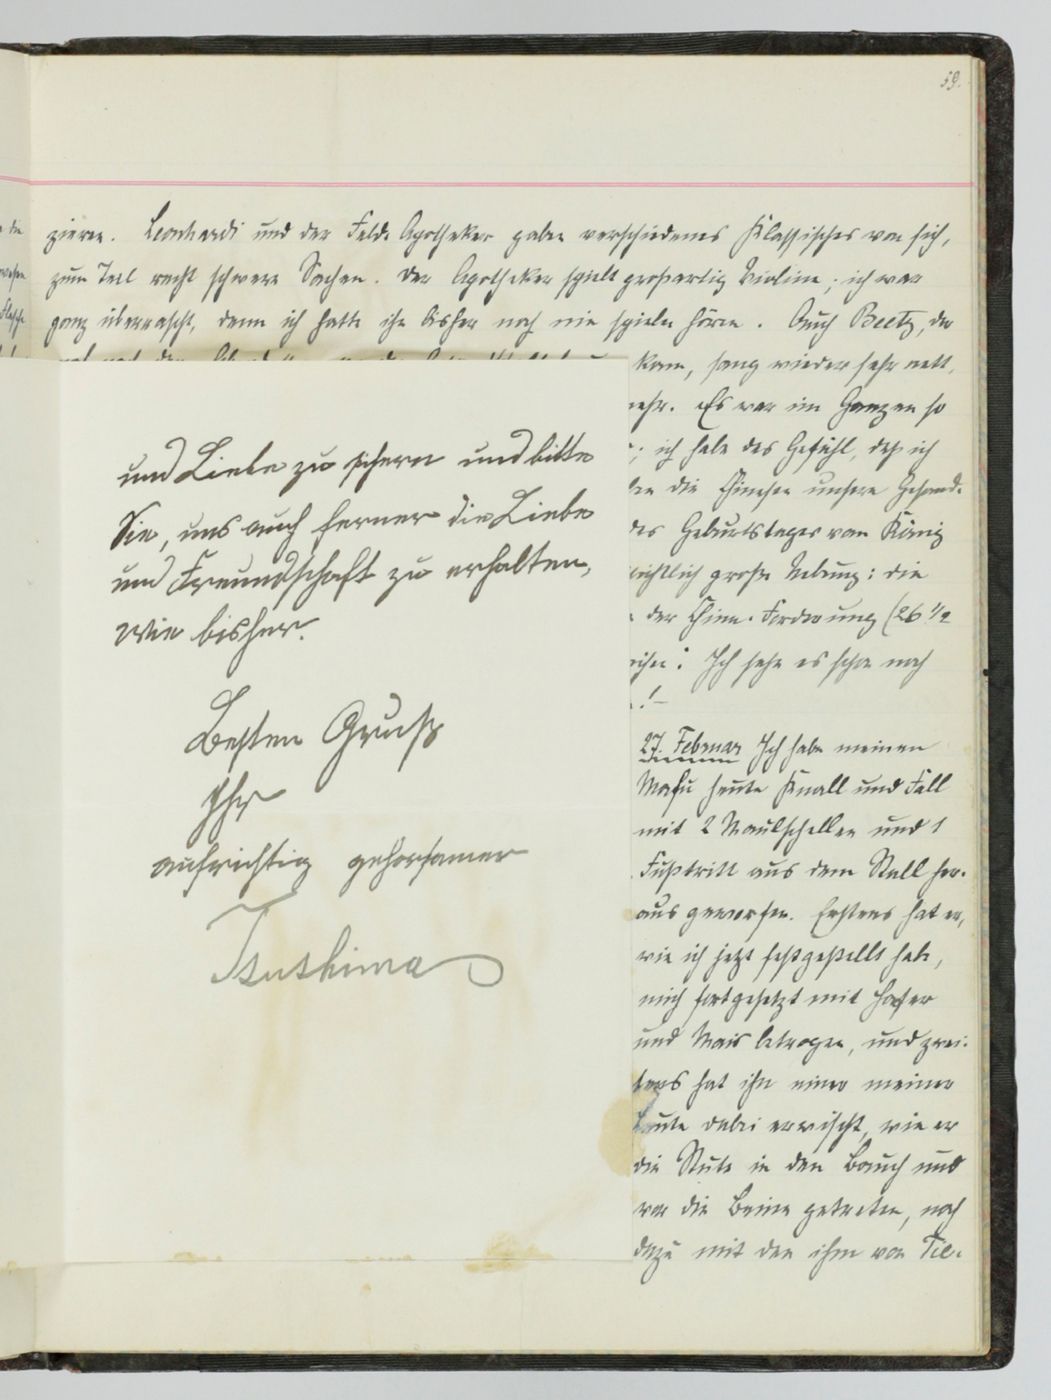 59.
zieren. Leonhardi und der Feld-Apotheker gaben verschiedenes Klassisches von sich,
zum Teil recht schwere Sachen. Der Apotheker spielt großartig Violine; ich war
ganz überrascht, denn ich hatte ihn bisher noch nie spielen hören. Auch Beetz, der
kam, sang wieder sehr nett,
mehr. Es war im Ganzen so
; ich habe das Gefühl, daß ich
die Chinesen unsere Gesand-
des Geburtstages vom König
große Uebung: die
der Chin. Forderung (26 1/2
Ich sehe es schon noch
!–
27. Februar Ich habe meinen
Mafu heute Knall und Fall
mit 2 Maulschellen und 1
Fußtritt aus dem Stall her-
aus geworfen. Erstens hat er,
wie ich jetzt festgestellt habe,
mich fortgesetzt mit Hafer
und Mais betrogen, und zwei-
tens hat ihn einer meiner
Leute dabei erwischt, wie er
die Stute in den Bauch und
vor die Beine getreten, noch
dazu mit den ihm von Tie-
und Liebe zu sichern und bitte
Sie, uns auch ferner die Liebe
und Freundschaft zu erhalten,
wie bisher.
Besten Gruß
Ihr
aufrichtig gehorsamer
Tsushima